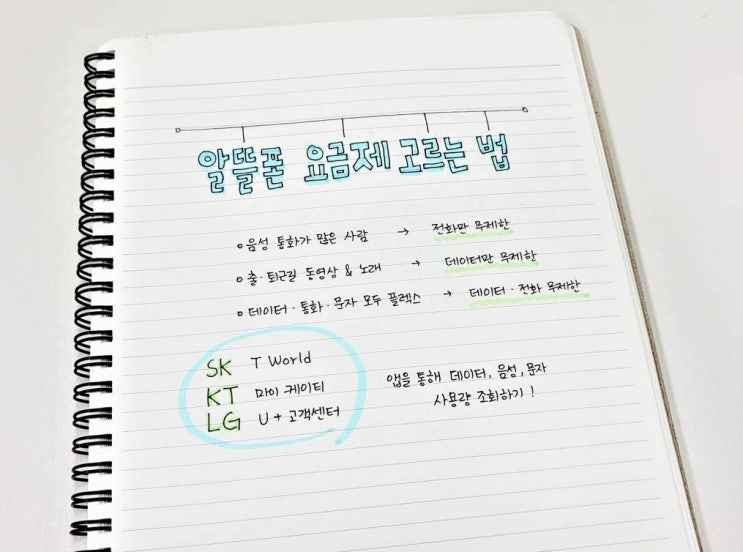 알뜰폰 요금제 고르는 법
음성 통화가 많은 사람 → 전화만 무제한
출·퇴근길 동영상 & 노래 → 데이터만 무제한
데이터·통화·문자 모두 플렉스 → 데이터·전화 무제한
SK T World
KT 마이 케이티
LG U+ 고객센터
앱을 통해 데이터, 음성, 문자
사용량 조회하기!